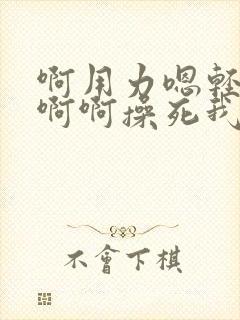 啊用力嗯轻
啊啊操死我
不會下棋